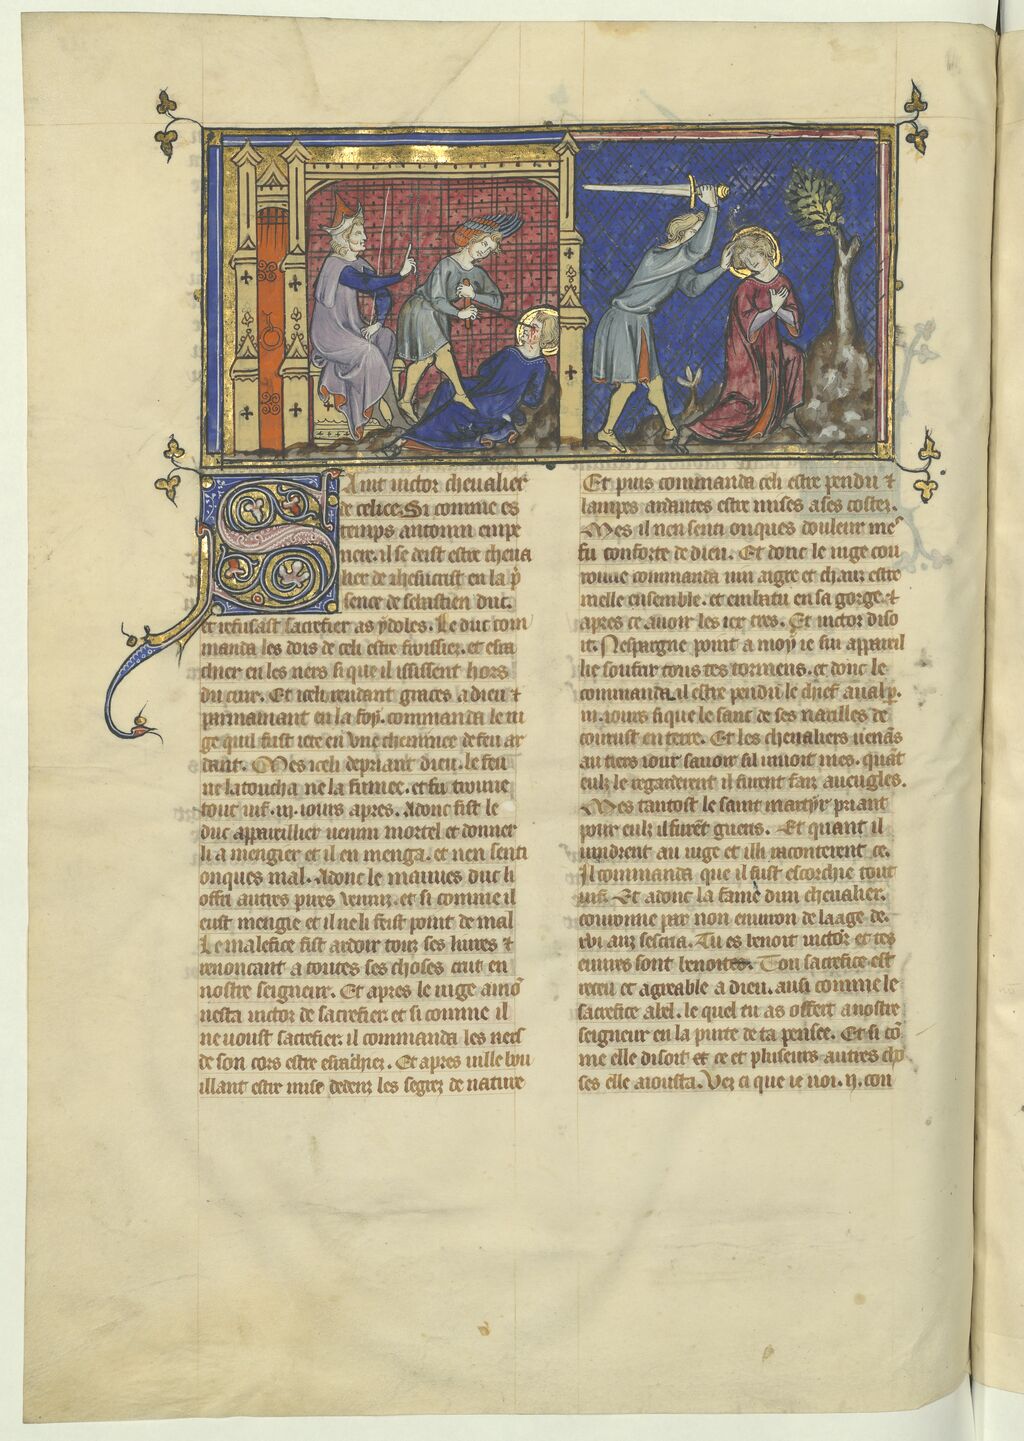 Saint uictor cheualier
de celice. Si comme es
temps antonin empe
riere. il se deist estre cheua
lier de ihesucrist en la p̄
sence de sebastien duc.
et refusast sacrefier as ydoles. Le duc com
manda les dois de celi estre froissiez. et esra
chier en les ners si que il ississent hors
du cuir. Et iceli rendant graces a dieu ⁊
parmainant en la foy. commanda le iu
ge quil fust iete en vne cheminee de feu ar
dant. Mes iceli depriant dieu. le feu
ne la toucha ne la fumee. et fu trouue
tout uif .iii. iours apres. Adonc fist le
duc appareillier uenim mortel et donner
li a mengier et il en menga. et nen senti
onques mal. Adonc le mauues duc li
offri autres pires venins. et si comme il
eust mengie et il ne li feist point de mal
Le malefice fist ardoir touz ses liures ⁊
renoncant a toutes ses choses crut en
nostre seigneur. Et apres le iuge amo
nesta uictor de sacrefier. et si comme il
ne uoust sacrefier. il commanda les ners
de son cors estre esrachier. Et apres uille bou
illant estre mise dedenz les segrez de nature
Et puis commanda celi estre pendu ⁊
lampes ardantes estre mises a ses costez.
Mes il nen senti onques douleur mes
fu conforte de dieu. Et donc le iuge cou
roucie commanda uin aigre et chauz estre
melle ensemble. et embatu en sa gorge. ⁊
apres ce auoir les iex cres. Et uictor diso
it. Nespargne point a moy ie sui appareil
lie soufrir tous tes tormens. et donc le
commanda. il estre pendu le chief aual p.
iii. iours si que le sanc de ses narilles de
courust en terre. Et les cheualiers uenās
au tiers iour sauoir sil uiuoit mes. quāt
eulz le regarderent il furent faiz aueugles.
Mes tantost le saint martyr priant
pour eulz il furēt gueris. Et quant il
uindrent au iuge et illi raconterent ce.
Il commanda que il fust escorchie tout
uif. Et adonc la fame dun cheualier.
couronne par non enuiron de laage de.
xvi anz sescria. Tu es benoit uictor et tes
euures sont benoites. Ton sacrefice est
receu et agreable a dieu. ausi comme le
sacrefice abel. le quel tu as offert a nostre
seigneur en la purte de ta pensee. Et si cō
me elle disoit et ce et pluseurs autres cho
ses elle aiousta. Vez ci que ie uoi .ij. cou